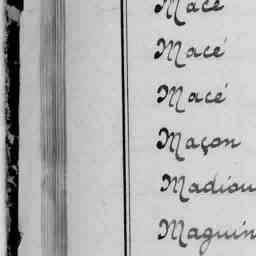 Macé
Macé
Macé
Maçon
Madiou
Maguin